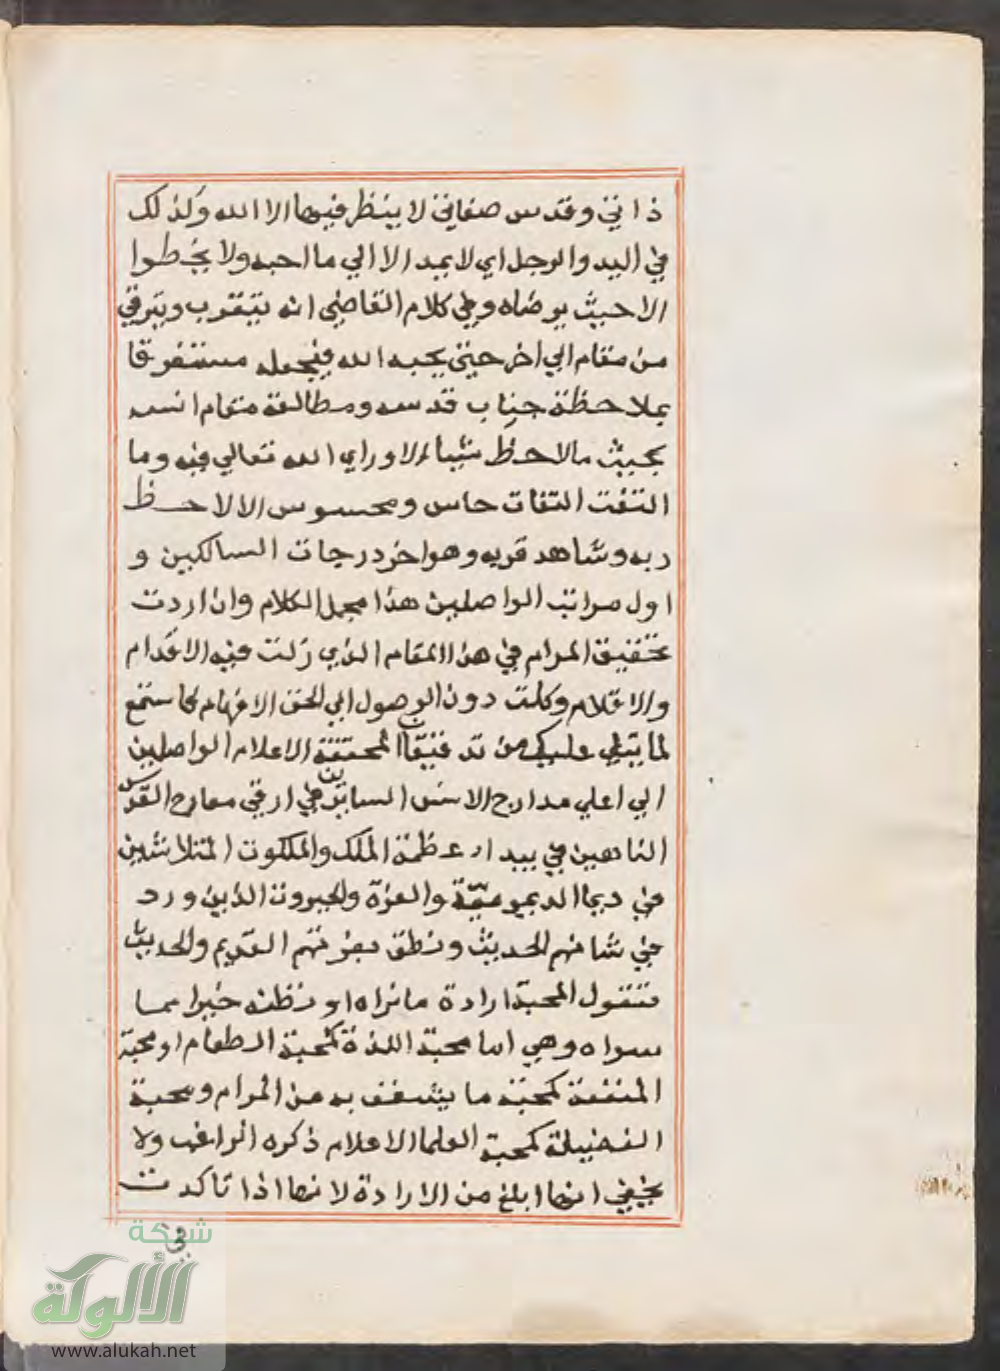 ذاتي وقدس صفاتي لا ينظر فيها الا الله وكذلك
في اليد والرجل اي لا يمد الا الي ما احبه ولا يخطوا
الا حيث يرضاه وفي كلام القاضي انه يتقرب ويترقي
من مقام الي اخر حتي يحبه الله فيجعله مستغرقا
بملاحظة جناب قدسه ومطالعة مقام انسه
بحيث ما لاحظ شيا الا وراي الله تعالي فيه وما
التفت التفات حاس ومحسوس الا لاحظ
ربه وشاهد قربه وهو اخر درجات السالكين و
اول مراتب الواصلين هذا مجمل الكلام وان اردت
تحقيق المرام في هذا المقام الذي زلت فيه الاقدام
والاقلام وكلت دون الوصول الي الحق الافهام فاستمع
لما يتلي عليك من تدقيقات المحققة الاعلام الواصلين
الي اعلي مدارج الانس السايرين في ارقي معارج القدس
التاهين في بيداء عظمة الملك والملكوت المتلاشين
في ديما الديمومية والعزة والجبروت الذين ورد
في شانهم الحديث ونطق بعزتهم القديم والحديث
فنقول المحبة ارادة ما نراه او نظنه خيرا مما
سواه وهي اما محبة اللذة كمحبة الطعام او محبة
المنفعة كمحبة ما ينتفع به من المرام ومحبة
الفضيلة كمحبة العلما الاعلام ذكره الراغب ولا
يخفي انها ابلغ من الارادة لانها اذا تاكدت
في
شبكة
الألوكة
www.alukah.net